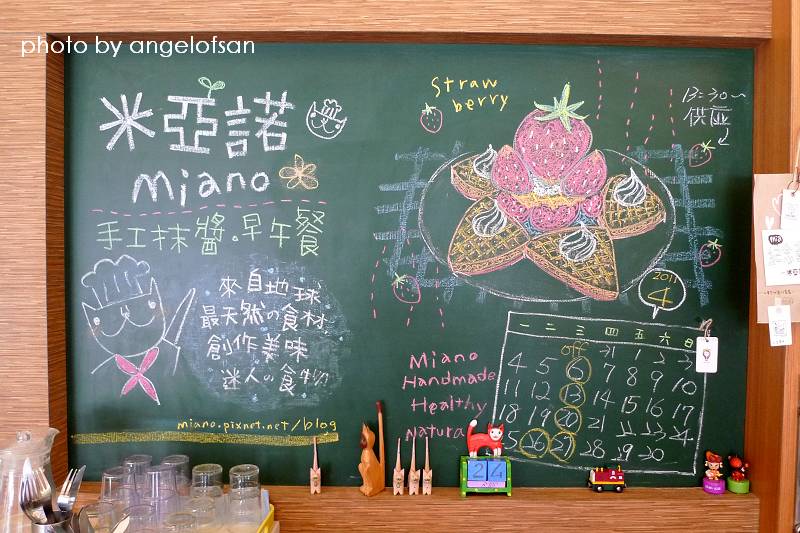 photo by angelofsan
米亞諾
miano
手工抹醬。早午餐
來自地球
最天然の食材
創作美味
迷人の食物
miano.pixnet.net/blog
Straw
berry
13:30~
供應
2011
4
一 二 三 四 五 六 日
off → 1 2 3
4 5 6 7 8 9 10
11 12 13 14 15 16 17
18 19 20 21 22 23 24
25 26 27 28 29 30
Miano
Handmade
Healthy
Natura
2 4